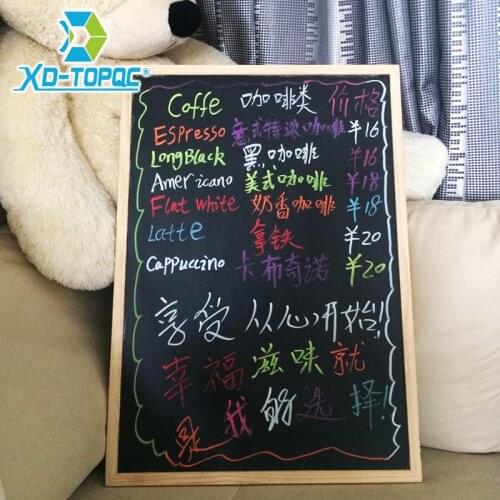 XD-TOPQC
Coffe 咖啡类 价格
Espresso 意式特浓咖啡 ¥16
Long Black 黑咖啡 ¥16
Americano 美式咖啡 ¥18
Flat white 奶香咖啡 ¥18
Latte 拿铁 ¥20
Cappuccino 卡布奇诺 ¥20
享受从心开始!
幸福滋味就
是我的选择!